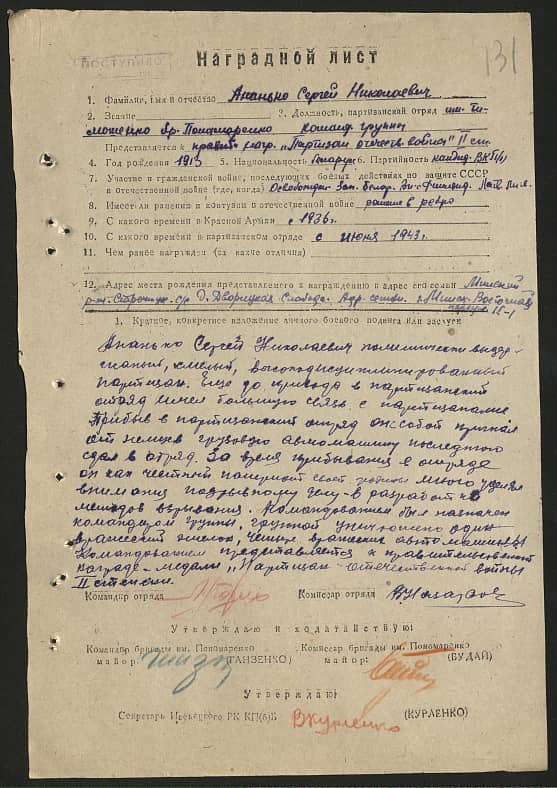 131
ПОСТУПИЛО
Наградной лист
1. Фамилия, имя и отчество Ананько Сергей Николаевич
2. Звание 3. Должность, партизанский отряд им. Ти-
мошенко бр. Пономаренко команд. группы
Представляется к правит. нагр. „Партизан отечеств войны" II ст.
4. Год рождения 1913 5. Национальность Беларус 6. Партийность канд. ВКП(б)
7. Участие в гражданской войне, последующих боевых действиях по защите СССР
в отечественной войне (где, когда) Освобожден. Зап. Белор.
8. Имеет ли ранения и контузии в отечественной войне ранение в ребро
9. С какого времени в Красной Армии с 1936г.
10. С какого времени в партизанском отряде с июня 1943г.
11. Чем ранее награжден (за какие отличия)
12. Адрес места рождения представляемого к награждению и адрес его семьи Минский
р-н с/с д. Дворицкая Слобода. Адр. семьи г. Минск Восточная
1. Краткое, конкретное изложение личного боевого подвига или заслуги
Ананько Сергей Николаевич политически выдер-
жаный, смелый, высокодисциплинированый
партизан. Еще до прихода в партизанский
отряд имел большую связь с партизанами
Прибыв в партизанский отряд он собой пригнал
от немцев грузовую автомашину последнюю
сдал в отряд. За время прибывания в отряде
он как честный патриот своей родины много уделял
внимания подрывному делу в разработке
методов взрывания. Командованием был назначен
командиром группы, группой уничтожено один
вражеский эшелон, четыре вражеских автомашины
Командованием представляется к правительственной
награде - медали „Партизан отечественной войны
II степени.
Командир отряда Комиссар отряда
Утверждаю и ходатайствую:
Командир бригады им. Пономаренко Комиссар бригады им. Пономаренко
майор: (ГАНЗЕНКО) майор: (БУДАЙ)
Утверждаю
Секретарь Ивенецкого РК КП(б)Б ВКурленко (КУРЛЕНКО)